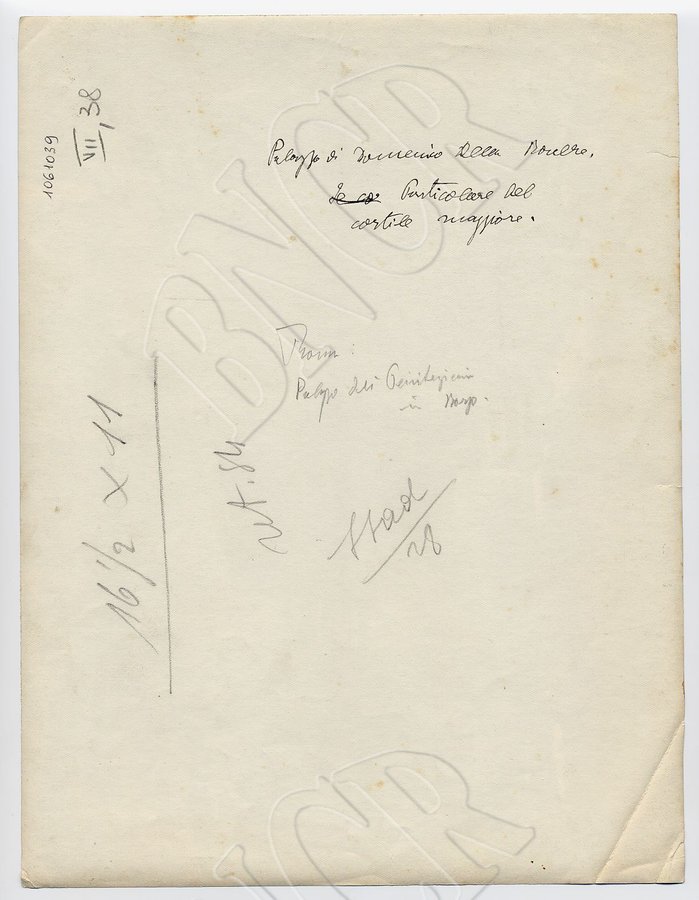 1061039
VII, 38
Palazzo di Domenico Della Rovere.
Particolare del
cortile maggiore.
Roma:
Palazzo dei Penitenzieri
in Borgo.
16 1/2 x 11
28
BNCR
BNCR